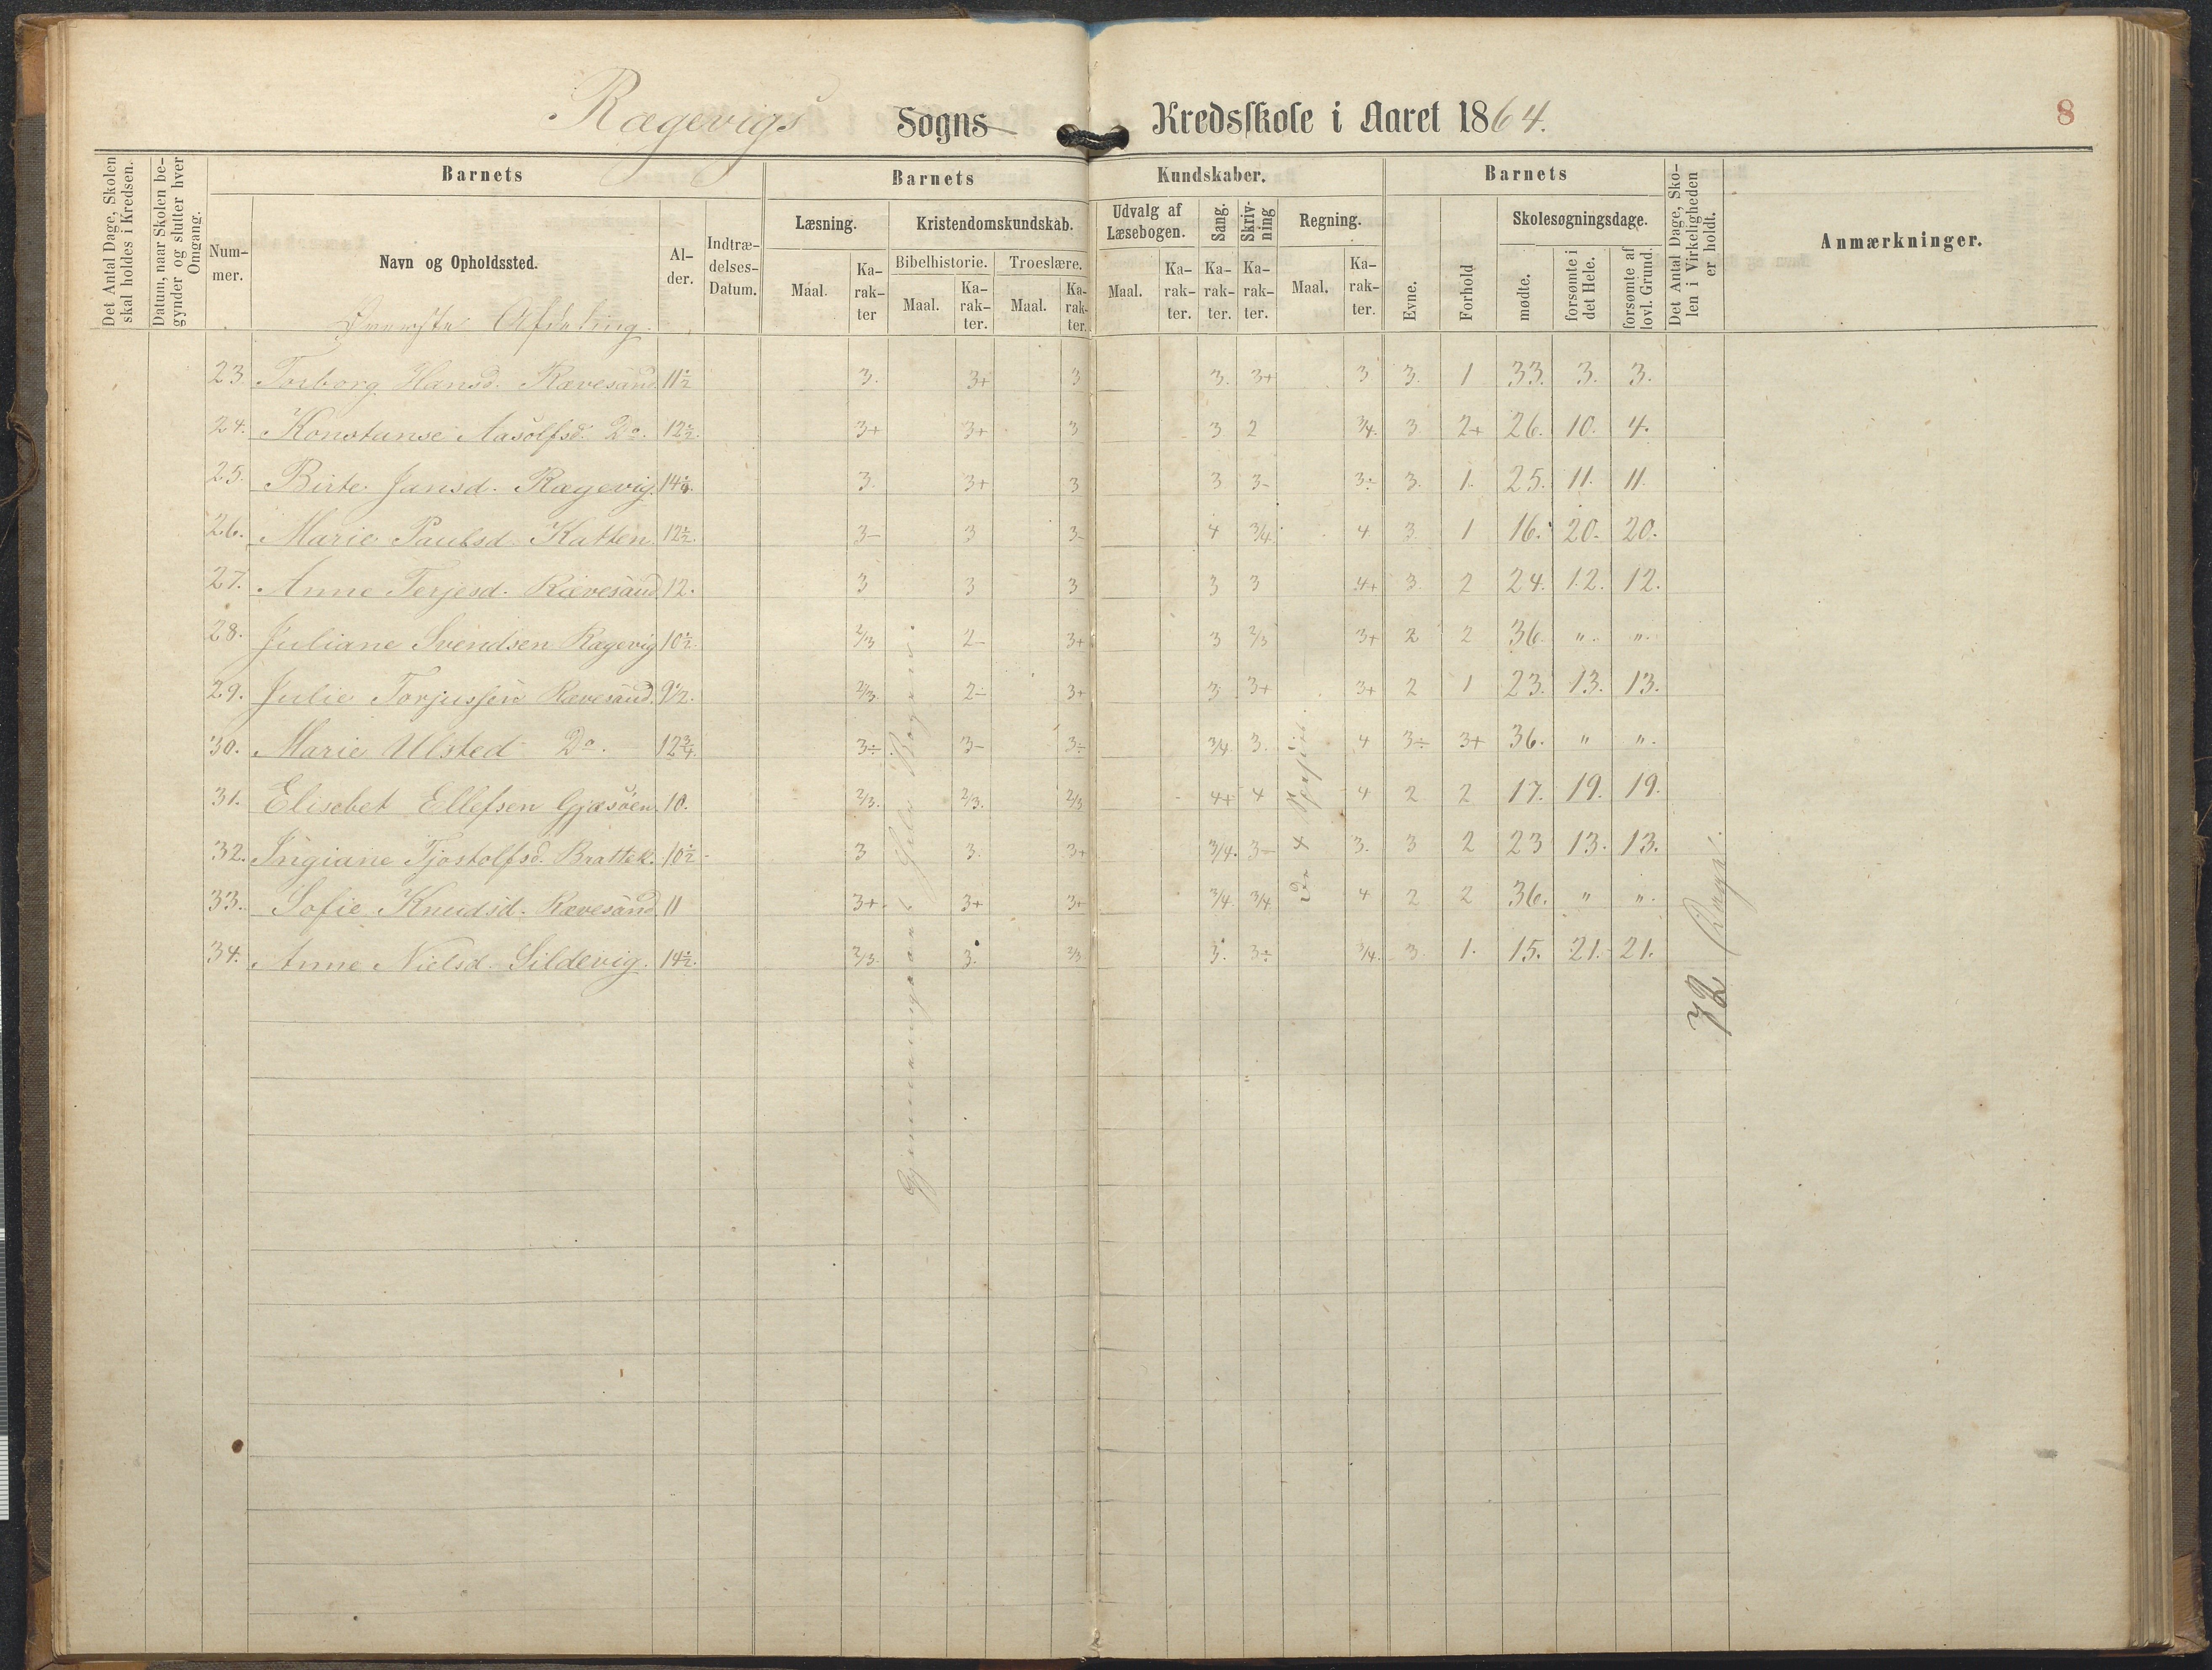 Rægevigs Sogns Kredsskole i Aaret 1864. 8
Det Antal Dage, Skolen skal holdes i Kredsen.
Datum, naar Skolen begynder og slutter hver Omgang.
Barnets Barnets Kundskaber. Barnets
Nummer. Navn og Opholdssted. Alder. Indtrædelses-Datum.
Læsning. Kristendomskundskab. Udvalg af Læsebogen. Sang. Skrivning Regning. Evne. Forhold Skolesøgningsdage.
Bibelhistorie. Troeslære.
Maal. Karakter Maal. Karakter. Maal. Karakter. Maal. Karakter. Karakter. Karakter. Maal. Karakter. mødte. forsømte i det Hele. forsømte af lovl. Grund.
Det Antal Dage, Skolen i Virkeligheden er holdt.
Anmærkninger.
Øverste Afdeling.
23. Torborg Hansd. Rævesand 11½ 3. 3+ 3 3. 3+ 3 3. 1 33. 3. 3.
24. Konstanse Aasolfsd. Do. 12½. 3+ 3+ 3 3 2 3/4. 3. 2+ 26. 10. 4.
25. Birte Jansd. Rægevig. 14½. 3. 3+ 3 3 3- 3÷ 3. 1. 25. 11. 11.
26. Marie Paulsd Katten. 12½. 3- 3 3- 4 3/4. 4 3. 1 16. 20. 20.
27. Anne Terjesd. Rævesand 12. 3 3 3 3 3 4+ 3 2 24. 12. 12.
28. Juliane Svendsen Rægevig 10½. 2/3 2- 3+ 3 2/3 3+ 2 2 36. " ".
29. Julie Torjussen Rævesand. 9½. 2/3. 2÷ 3+ 3 3+ 3+ 2 1 23. 13. 13.
30. Marie Ulsted Do. 12¾. 3÷ 3- 3÷ 3/4. 3. 4 3÷ 3+ 36. " ".
31. Elisebet Ellefsen Gjæsøen. 10. 2/3. 2/3. 2/3 4+ 4 4 2 2 17. 19. 19.
32. Ingiane Tjostolfsd. Brattek. 10½ 3 3. 3+ 3/4. 3- 3. 3 2 23 13. 13.
33. Sofie Knudsd. Rævesand 11 3+ 3+ 3+ 3/4. 3/4 4 2 2 36. " ".
34. Anne Nielsd. Sildevig. 14½. 2/3. 3. 2/3 3. 3÷ 3/4. 3. 1. 15. 21. 21.
Gjennemgaaet hele Bogen.
72 Dage.